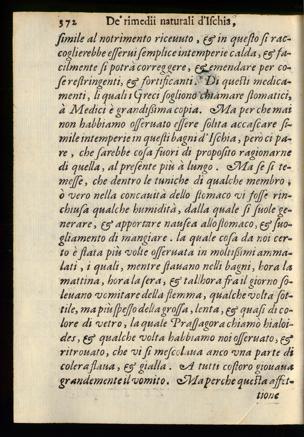 372 De' rimedii naturali d'Ischia,
ſimile al notrimento riceuuto, & in queſto ſi rac-
coglierebbe eſſerui ſemplice intemperie calda, & fa-
cilmente ſi potrà correggere, & emendare per co-
ſe reſtringenti, & fortificanti. Di queſti medica-
menti, li quali i Greci ſogliono chiamare ſtomatici,
à Medici è grandiſſima copia. Ma per che mai
non habbiamo oſſeruato eſſere ſolita accaſcare ſi-
mile intemperie in queſti bagni d'Iſchia, però ci pa-
re, che ſarebbe coſa fuori di propoſito ragionarne
di quella, al preſente più à lungo. Ma ſe ſi te-
meſſe, che dentro le tuniche di qualche membro,
ò vero nella concauità dello ſtomaco vi foſſe rin-
chiuſa qualche humidità, dalla quale ſi ſuole ge-
nerare, & apportare nauſea allo ſtomaco, & ſuo-
gliamento di mangiare. la quale coſa da noi cer-
to è ſtata più volte oſſeruata in moltiſſimi amma-
lati, i quali, mentre ſtauano nelli bagni, hora la
mattina, hora la ſera, & tal'hora fra il giorno ſo-
leuano vomitare della flemma, qualche volta ſot-
tile, ma più ſpeſſo della groſſa, lenta, & quaſi di co-
lore di vetro, la quale Praſſagora chiamò hialoi-
des, & qualche volta habbiamo noi oſſeruato, &
ritrouato, che vi ſi meſcolaua anco vna parte di
colera flaua, & gialla. A tutti coſtoro giouaua
grandemente il vomito. Ma perche queſta affet-
tione